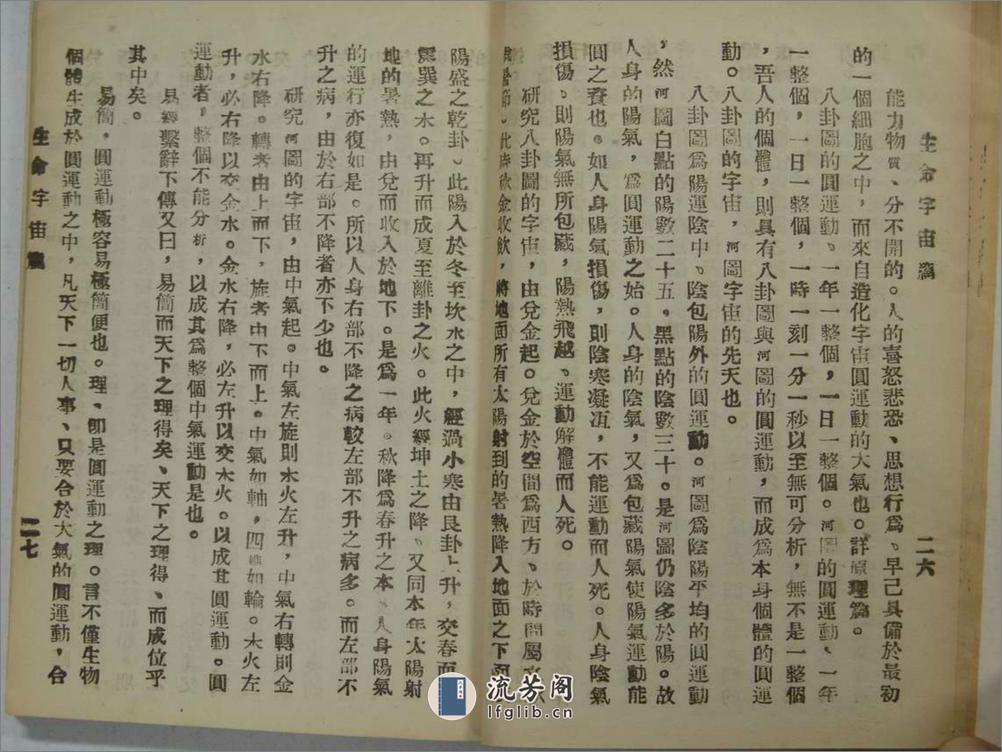 生命宇宙篇
二六
能力物質、分不開的。人的喜怒悲恐、思想行爲、早已具備於最初
的一個細胞之中，而來自造化宇宙圓運動的大氣也。詳原理篇。
八卦圖的圓運動、一年一整個，一日一整個。河圖的圓運動、一年
一整個，一日一整個，一時一刻一分一秒以至無可分析，無不是一整個
，吾人的個體，則具有八卦圖與河圖的圓運動，而成爲本身個體的圓運
動。八卦圖的宇宙，河圖宇宙的先天也。
八卦圖爲陽運陰中、陰包陽外的圓運動。河圖爲陰陽平均的圓運動
，然河圖白點的陽數二十五。黑點的陰數三十。是河圖仍陰多於陽。故
人身的陽氣，爲圓運動之始。人身的陰氣，又爲包藏陽氣使陽氣運動能
圓之資也。如人身陽氣損傷，則陰寒凝冱，不能運動而人死。人身陰氣
損傷、則陽氣無所包藏，陽熱飛越、運動解體而人死。
研究八卦圖的宇宙，由兌金起。兌金於空間爲西方、於時間屬
此時秋金收歛，將地面所有太陽射到的暑熱降入地面之下
陽盛之乾卦。此陽入於冬至坎水之中，經過小寒由艮卦上升，交春而
震巽之木。再升而成夏至離卦之火。此火經坤土之降、又同本年太陽射
地的暑熱，由兌而收入於地下。是爲一年。秋降爲春升之本、人身陽氣
的運行亦復如是。所以人身右部不降之病較左部不升之病多。而左部不
升之病，由於右部不降者亦不少也。
研究河圖的宇宙，由中氣起。中氣左旋則木火左升，中氣右轉則金
水右降。轉者由上而下，旋者由下而上。中氣如軸，四維如輪。木火左
升，必右降以交金水。金水右降，必左升以交木火。以成其圓運動。圓
運動者，整個不能分析，以成其爲整個中氣運動是也。
易經繫辭下傳又曰，易簡而天下之理得矣、天下之理得、而成位乎
其中矣。
易簡，圓運動極容易極簡便也。理、卽是圓運動之理。言不僅生物
個體生成於圓運動之中，凡天下一切人事、只要合於大氣的圓運動，合
生命宇宙篇
二七
流芳阁
lfglib.cn